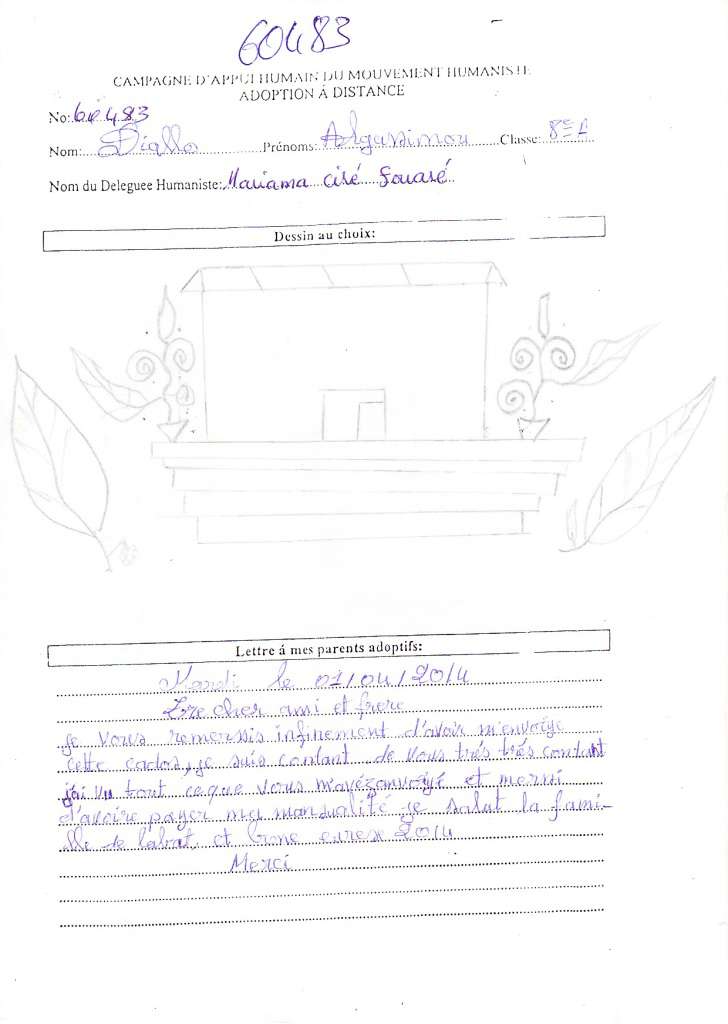 60483
CAMPAGNE D'APPUI HUMAIN DU MOUVEMENT HUMANISTE
ADOPTION À DISTANCE
No: 60483
Nom: Diallo Prénoms: Algassimou Classe: 8e
Nom du Deleguee Humaniste: Mariama Ciré Souaré
Dessin au choix:
Lettre á mes parents adoptifs:
Mardi le 01/04/2014
cher ami et frere
je vous remersis infinement d'avoir m'envoiye
cette cados, je suis contant de vous trés trés contant
j'ai vu tout ceque vous m'avéz anvoiyé et mersi
d'avoire payer ma mansualité je salut la fami-
lle de et bone 2014
Merci